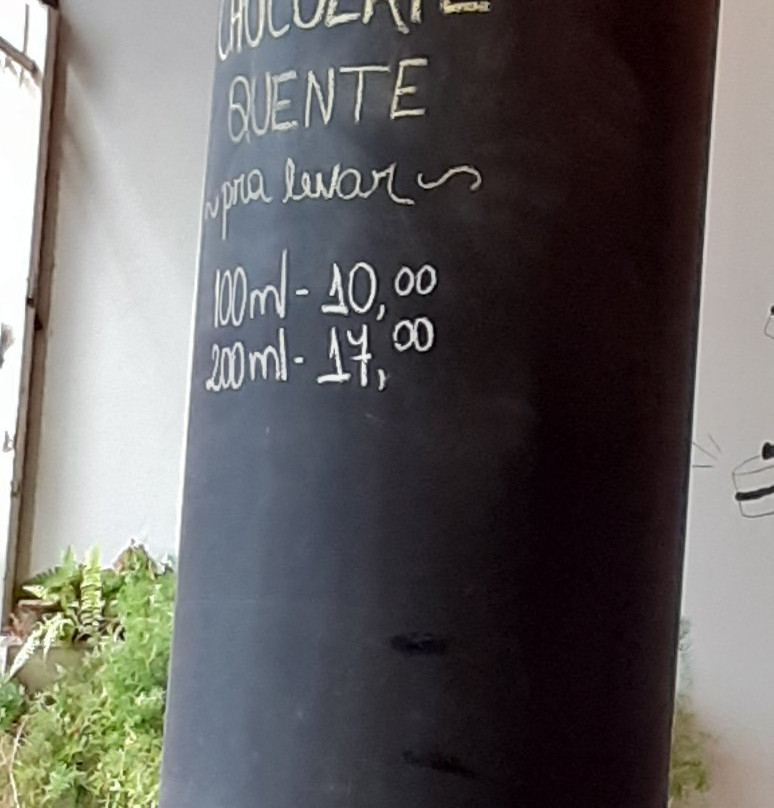 CHOCOLATE
QUENTE
~pra levar~
100ml - 10,00
200ml - 17,00